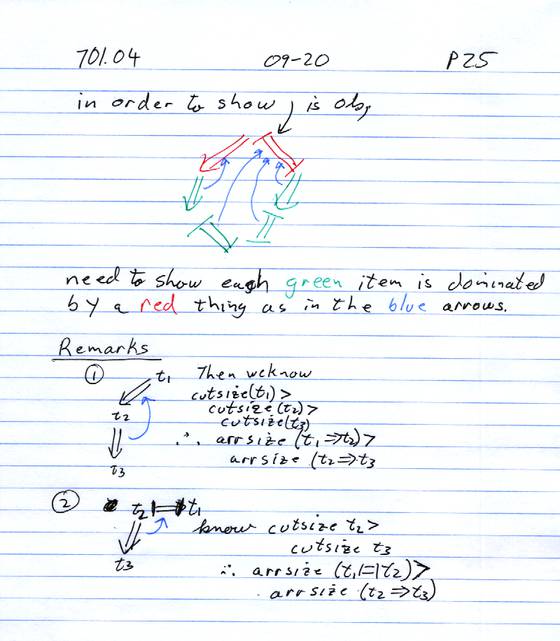 701.04 09-20 P25
in order to show ↓ is obj
need to show each green item is dominated
by a red thing as in the blue arrows.
Remarks
① t1 Then we know
cutsize(t1)>
t2 cutsize(t2)>
cutsize(t3)
∴ arrsize (t1⇒t2)>
t3 arrsize (t2⇒t3
② t2 t1
know cutsize t2>
t3 cutsize t3
∴ arrsize (t1|=|t2)>
arrsize (t2⇒t3)